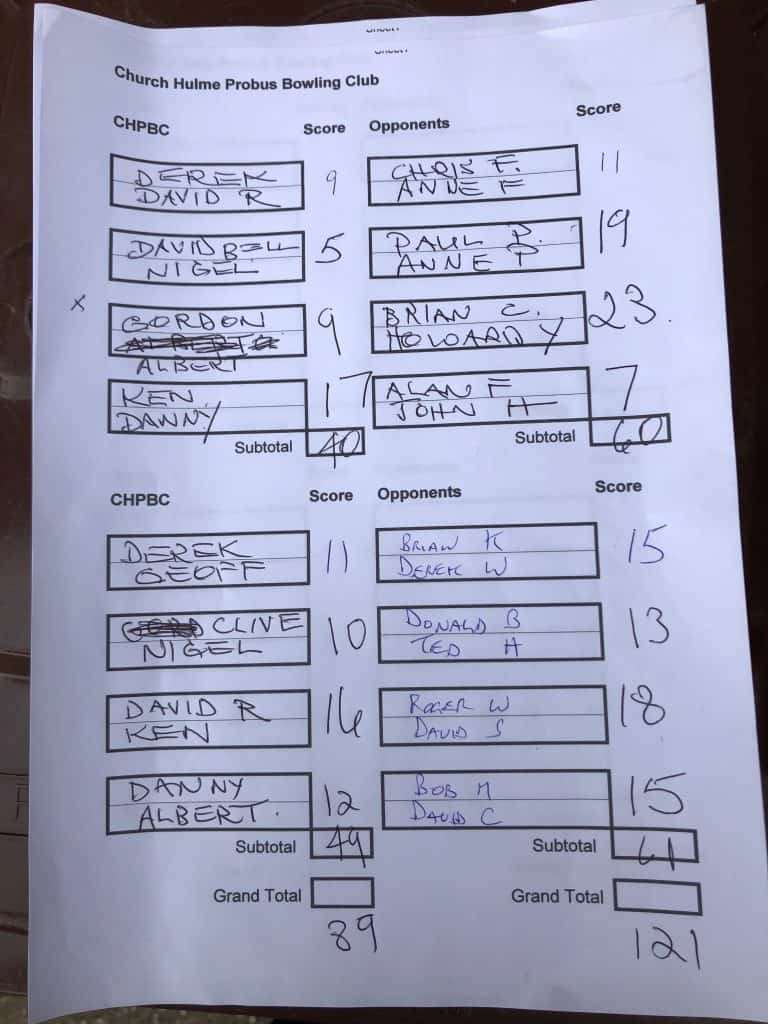 Church Hulme Probus Bowling Club
CHPBC Score Opponents Score
DEREK 9 CHRIS F. 11
DAVID R ANNE F
DAVID BELL 5 PAUL P. 19
NIGEL ANNE P
X GORDON 9 BRIAN C. 23.
ALBERT HOWARD Y
KEN 17 ALAN F 7
DANNY JOHN H
Subtotal 40 Subtotal 60
CHPBC Score Opponents Score
DEREK 11 BRIAN K 15
GEOFF DEREK W
CLIVE 10 DONALD B 13
NIGEL TED H
DAVID R 16 ROGER W 18
KEN DAVID S
DANNY 12 BOB M 15
ALBERT. DAVID C
Subtotal 49 Subtotal 61
Grand Total Grand Total
89 121